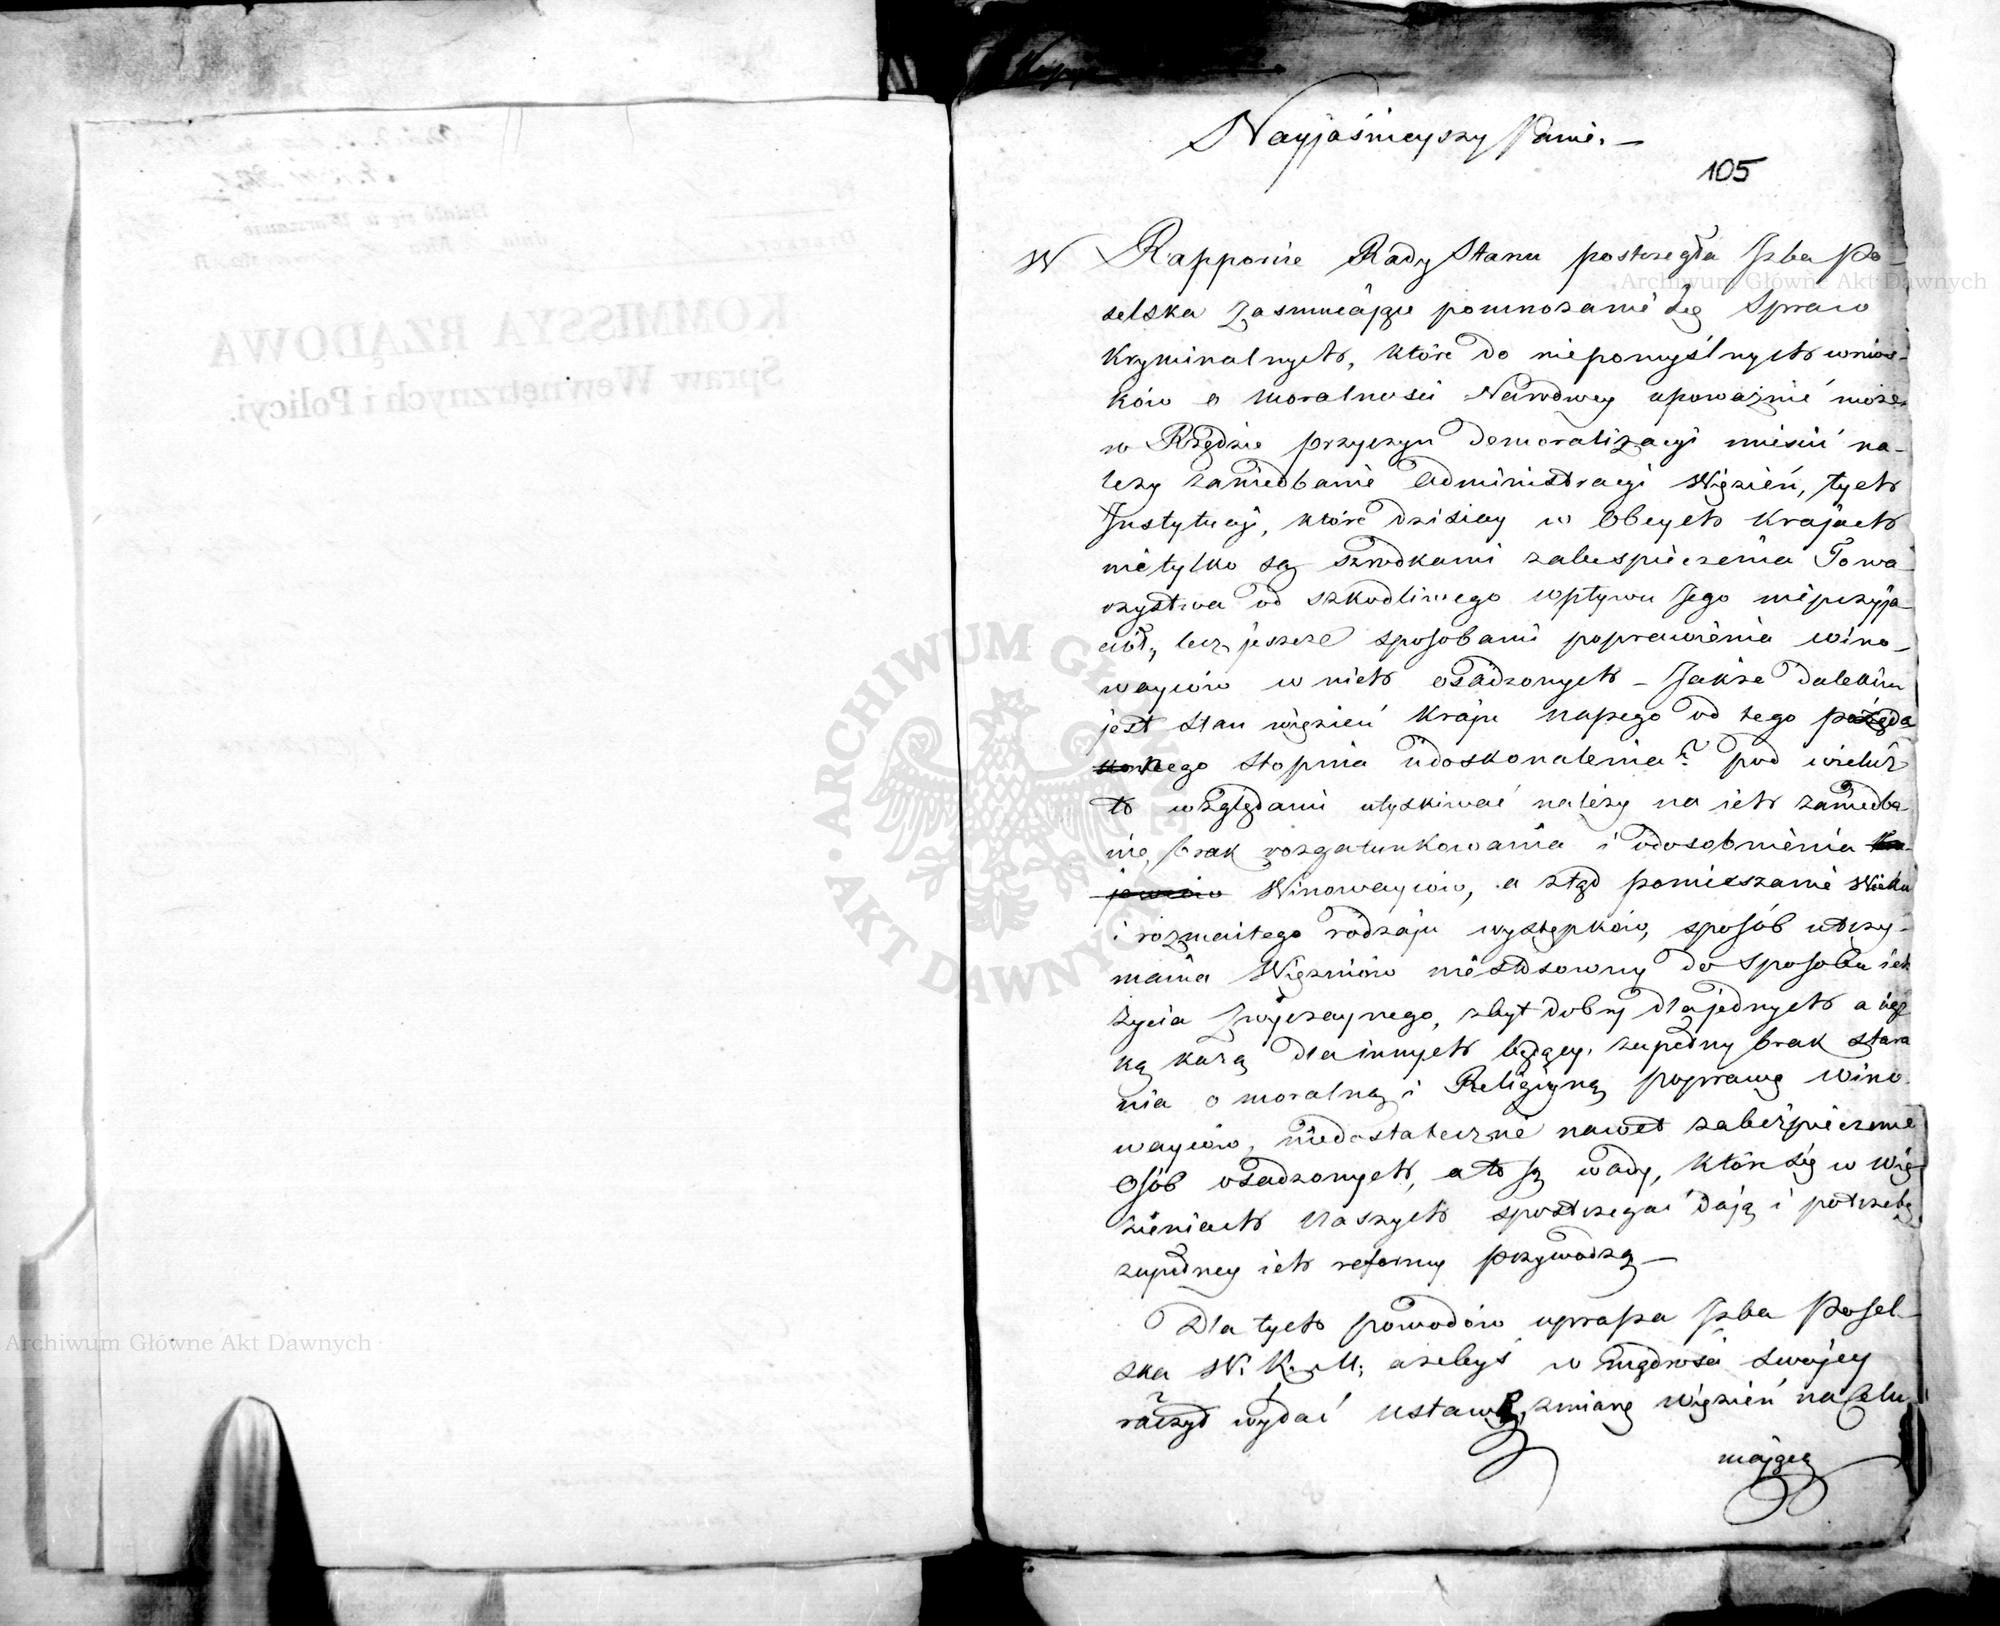 Nayjaśnieyszy Panie. —
105
W Rapporcie Rady Stanu postrzegła Izba Po-
selska zasmucające pomnożanie się Spraw
Kryminalnych, które do niepomyślnych wnios-
ków o moralności Narodowey upoważnić może.
w Rzędzie przyczyn demoralizacyi mieścić na-
leży zaniedbanie Administracyi Więzień, tych
Instytucyi, które dzisiay w Obcych Krajach
nie tylko są szrodkami zabespieczenia Towa-
rzystwa od szkodliwego wpływu Jego nieprzyja-
ciół, lecz jeszcze sposobami poprawienia wino-
waycow w nich osadzonych — Jakże dalekim
jest stan więzień Kraju naszego od tego pożąda
nego stopnia udoskonalenia? pod wieluż
to względami utyskiwać należy na ich zaniedba
nie, brak rozgatunkowania i odosobnienia
Winowaycow, a ztąd pomieszanie Wieku
i rozmaitego rodzaju występków, sposób utrzy-
mania Więzniów niestosowny do sposobu ich
życia zwyczaynego, zbyt dobry dla jednych a cięż
ką karą dla innych będący, zupełny brak stara
nia o moralną i Religiyną poprawę wino-
waycow, niedostateczne nawet zabezpieczenie
Osób osadzonych, a to są wady, które się w wię
zieniach naszych spostrzegać dają i potrzebę
zupełney ich reformy przywodzą —
Dla tych powodów uprasza Izba Posel-
ska W. K. M. ażebyś w mądrości swojey
raczył wydać ustawę, zmianę więzień na celu
mającą
KOMMISSYA RZĄDOWA
Spraw Wewnętrznych i Policyi.
Archiwum Główne Akt Dawnych
ARCHIWUM GŁÓWNE AKT DAWNYCH
Archiwum Główne Akt Dawnych